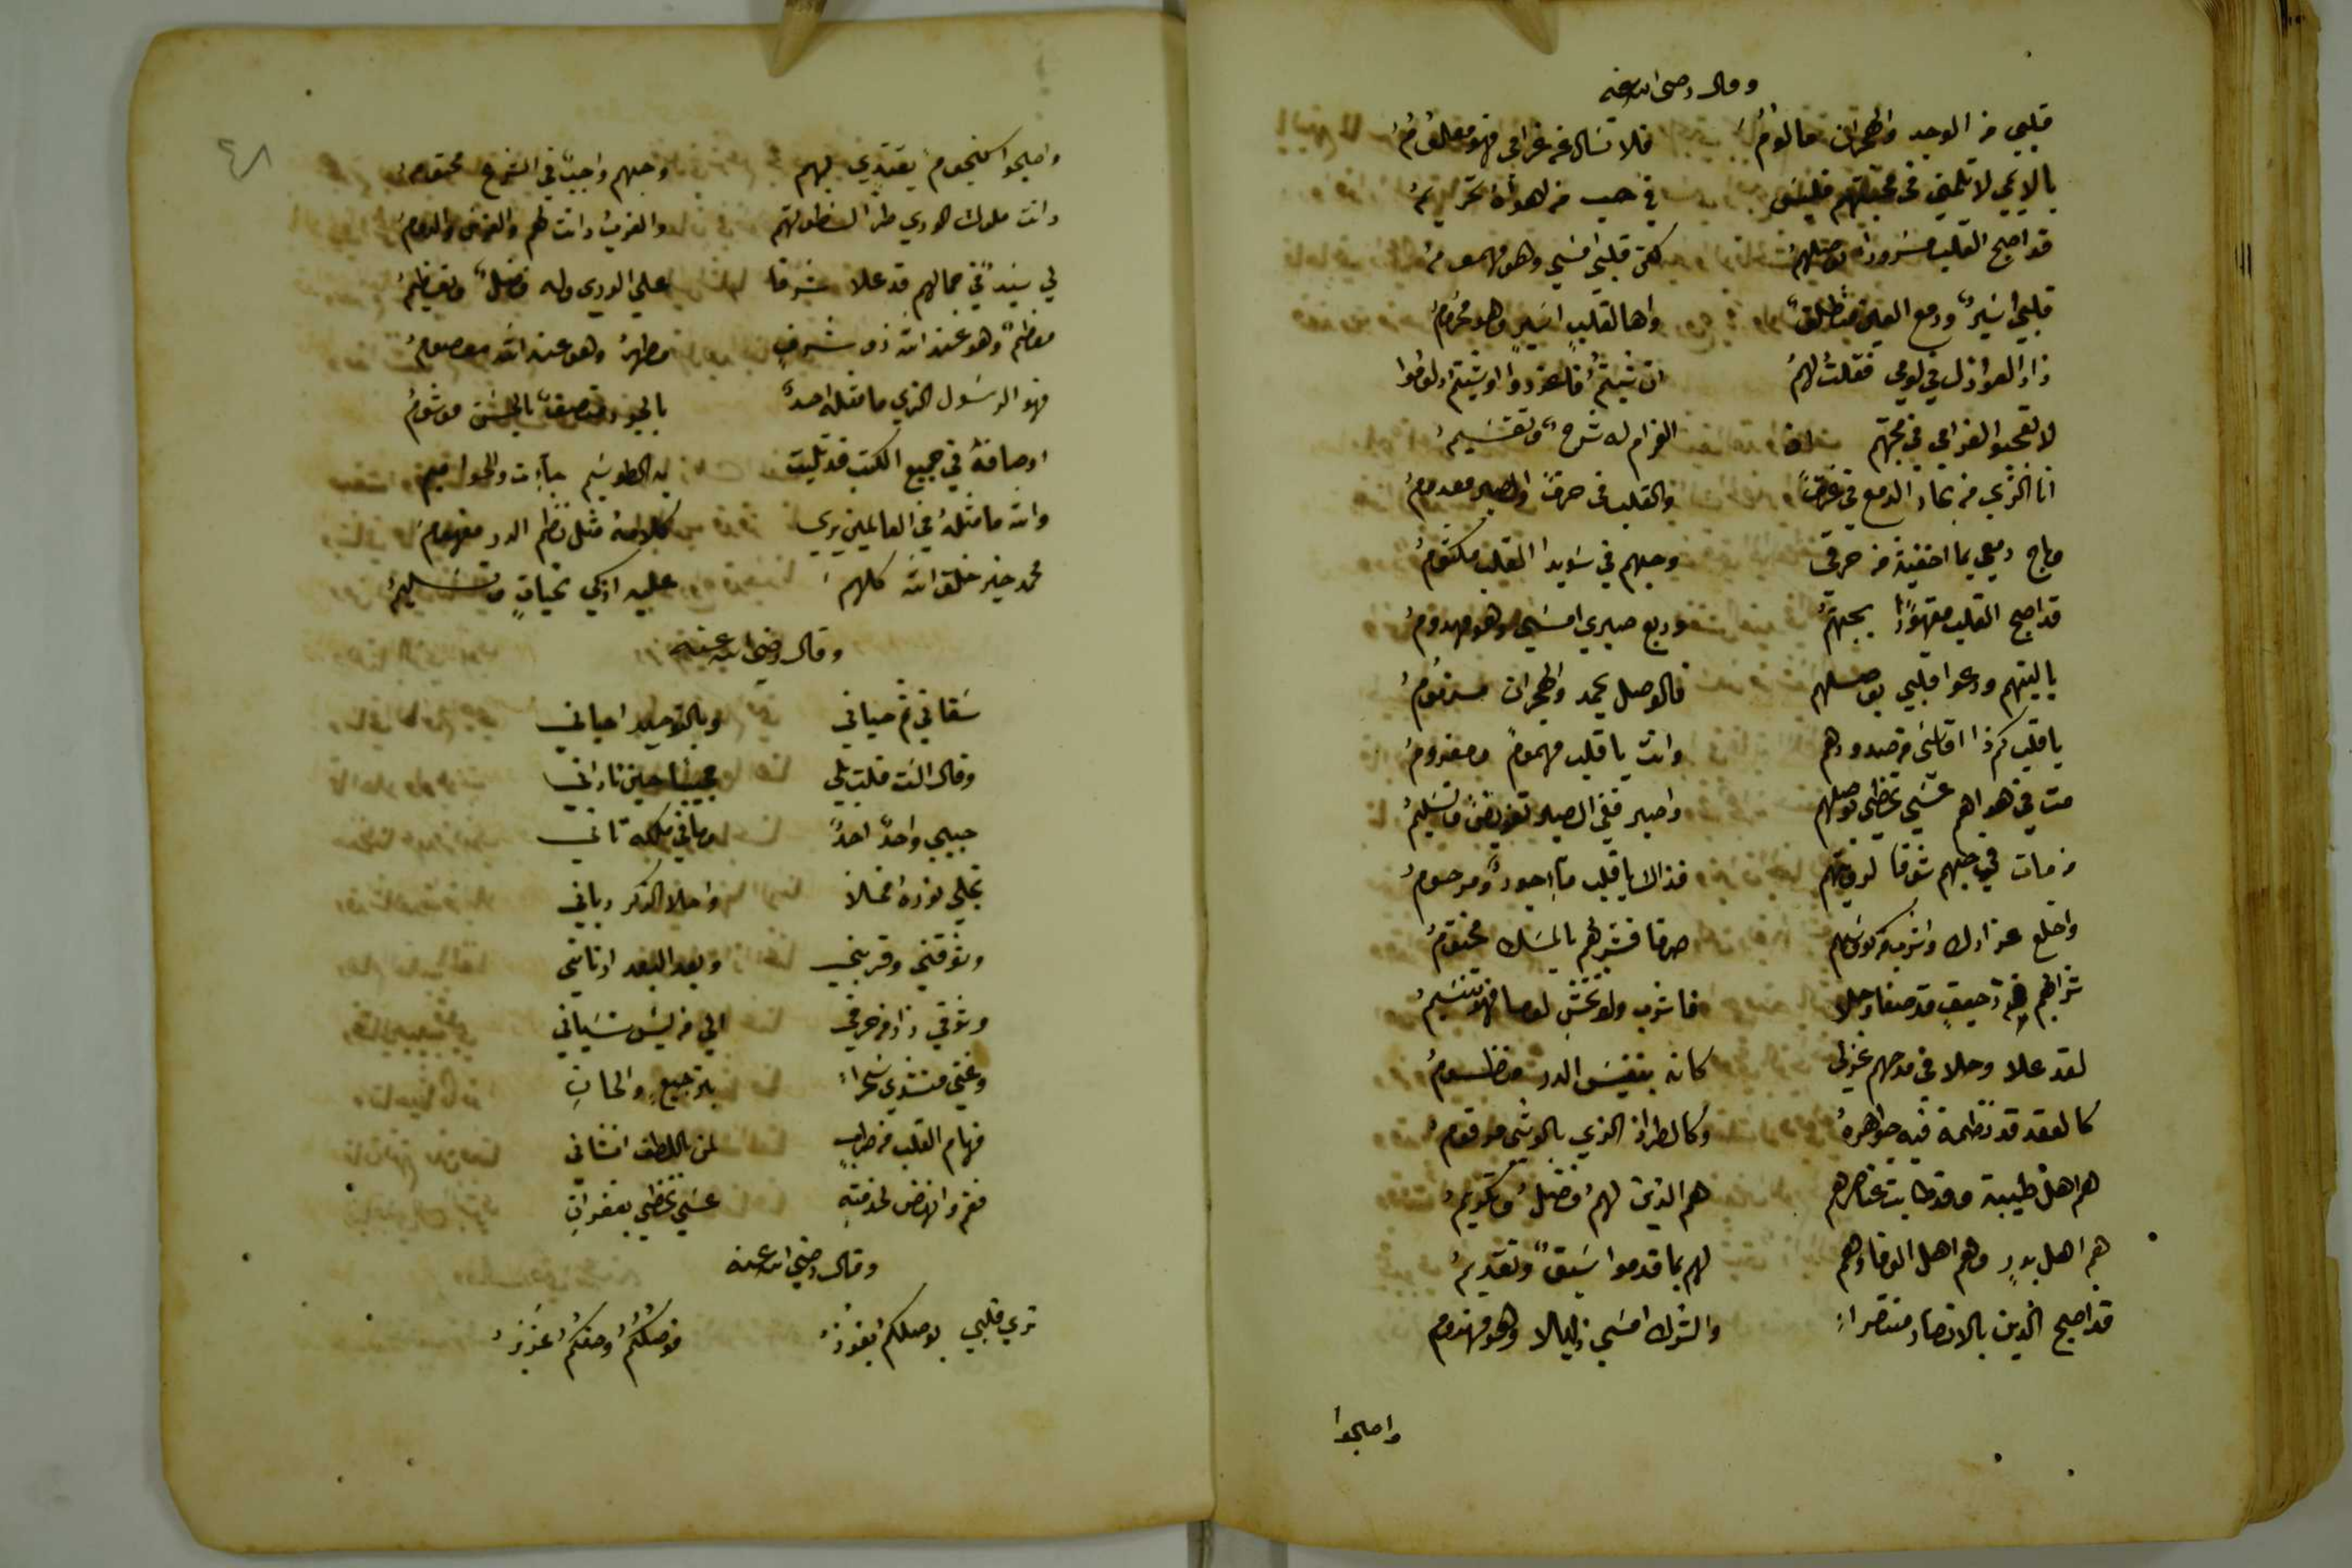 وقال رضي الله عنه
قلبي من الوجد والهجران مالوم فلا تسال عن غرامي فهو معلوم
يالايمي لا تلمني في محبتهم فليس في حب من اهواه تحريم
قد اصبح القلب مسرورا بوصلهم لكن قلبي امسي وهو مهموم
قلبي اسير ودمع العين منطلق واها لقلب اسير وهو محروم
زاد العواذل في لومي فقلت لهم ان شيتم فاعذروا او شيتم لوموا
لا تعجبوا لغرامي في محبتهم ان الغرام له شرح وتقسيم
انا الذي من بحار الدمع في غرق والقلب في حرق والصبر معدوم
وباح دمعي بما اخفيه من حرقي وحبهم في سويدا القلب مكتوم
قد اصبح القلب مقهورا بحبهم وربع صبري امسي وهو مهدوم
ياليتهم ودعوا قلبي بوصلهم فالوصل يحمد والهجران مذموم
ياقلب كم ذا اقاسي من صدودهم وانت ياقلب مهموم ومغروم
مت في هواهم عسي تحظي بوصلهم واصبر ففي الصبر تفويض وتسليم
من مات في حبهم شوقا لرويتهم فذاك ياقلب ماجور ومرحوم
واخلع عذارك واشرب من كوسهم صرفا فشربهم بالمسك مختوم
شرابهم من رحيق قد صفا وحلا فاشرب ولا تخش لوما فهو تنسيم
لقد علا وحلا في مدحهم غزلي كانه بنفيس الدر منظوم
كالعقد قد نظمت فيه جواهره وكالطراز الذي بالوشي مرقوم
هم اهل طيبة وقد طابت عناصرهم هم الذين لهم فضل وتكريم
هم اهل بدر وهم اهل الوفا وهم لهم بما قدموا سبق وتقديم
قد اصبح الدين بالانصار منتصرا والشرك امسي ذليلا وهو مهزوم
واصبحوا
٤٨
واصبحوا كنجوم يقتدي بهم وحبهم واجب في الشرع محتوم
دانت ملوك الوري طرا لسطوتهم والغرب دانت لهم والفرس والروم
لي سيد في جمالهم قد علا شرفا علي الوري وله فضل وتعظيم
معظم وهو عند الله ذو شرف مطهر وهو عند الله معصوم
فهو الرسول الذي ما مثله احد بالجود متصف بالحسن موسوم
اوصافه في جميع الكتب قد تليت به الطواسيم جاءت والحواميم
والله ما مثله في العالمين يري كلامه مثل نظم الدر مفهوم
محمد خير خلق الله كلهم عليه ازكي تحيات وتسليم
وقال رضي الله عنه
سقاني ثم حياني وبالتوحيد احياني
وقال الست قلت بلي مجيبا حين ناداني
حبيبي واحد احد وما في ملكه ثاني
تجلي نوره واحلا الذكر رباني
وشوقني وقربني وبعد البعد ادناني
وشوقي زاد من حرقي الي من ليس ينساني
وغني منشدي سحرا بترجيع والحان
فهام القلب من طرب لمن باللطف انشاني
فقم وانهض لخدمته عسي تحظي بغفران
وقال رضي الله عنه
تري قلبي بوصلكم يفوز فوصلكم وحقكم عزيز